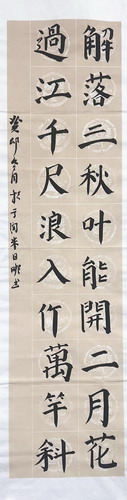 解落三秋叶能開二月花
過江千尺浪入竹萬竿斜
癸卯冬月